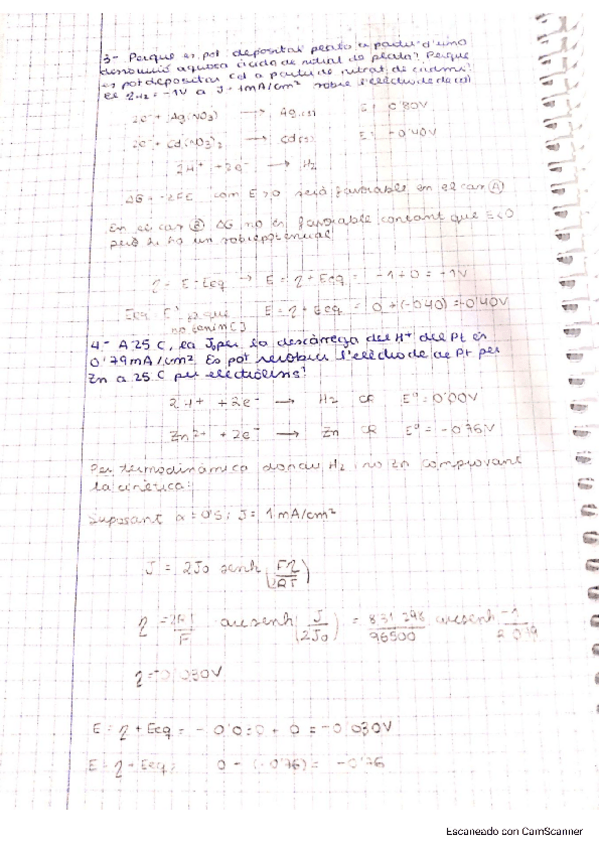 3- Perque es pot depositar plata a partir d'una
dissolució aquosa àcida de nitrat de plata? Perque
es pot depositar Cd a partir de nitrat de cadmi?
el η H2 = -1V a J = 1mA/cm² sobre l'elèctrode de Cd
2e⁻ + Ag(NO3) → Ag(s) E = 0'80V
2e⁻ + Cd(NO3)2 → Cd(s) E = -0'40V
2H⁺ + 2e⁻ → H2
ΔG = -zFE com E>0 serà favorable en el cas A
En el cas B ΔG no és favorable constant que E<0
però hi ha un sobrepotencial
η = E - Eeq → E = η + Eeq = -1+0 = -1V
E = η + Eeq = 0 + (-0'40) = -0'40V
no tenim C]
4- A 25 C, la J0 per la descàrrega del H⁺ del Pt és
0'79mA/cm². Es pot recobrir l'elèctrode de Pt per
Zn a 25 C per electròlisis?
2H⁺ + 2e⁻ → H2 CR E° = 0'00V
Zn²⁺ + 2e⁻ → Zn CR E° = -0'76V
Per termodinàmica H2 no Zn comprovant
la cinètica:
suposant α = 0'5 i J = 1 mA/cm²
J = 2J0 senh (Fη/2RT)
η = 2RT/F arcsenh (J/2J0) = 8'31 298/96500 arcsenh -1/2 0'79
η = -0'030V
E = η + Eeq = -0'030 + 0 = -0'030V
E = η - Eeq = 0 - (-0'76) = -0'76
Escaneado con CamScanner